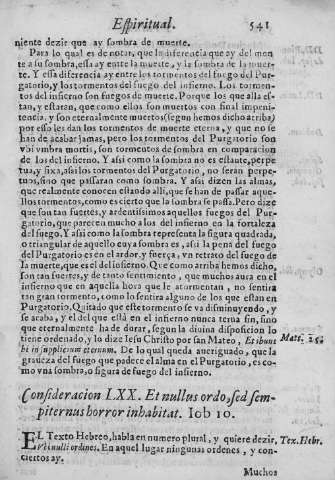 Espiritual. 541
niente dezir que ay sombra de muerte.
Para lo qual es de notar, que la diferencia que ay del mon
te a su sombra, essa ay entre la muerte, y la sombra de la muer-
te. Y essa diferencia ay entre los tormentos del fuego del Pur-
gatorio, y los tormentos del fuego del infierno. Los tormen-
tos del infierno son fuegos de muerte. Porque los que alla es-
tan, y estaràn, que como ellos son muertos con final impeni-
tencia, y son eternalmente muertos (segun hemos dicho arriba)
por esso les dan los tormentos de muerte eterna, y que no se
han de acabar jamas, pero los tormentos del Purgatorio son
vmbra mortis, son tormentos de sombra en comparacion
de los del infierno. Y assi como la sombra no es estante, perpe-
tua, y fixa, assi los tormentos del Purgatorio, no seràn perpe-
tuos, sino que passaràn como sombra. Y assi dizen las almas,
que realmente conocen estando alli, que se han de passar aque-
llos tormentos, como es cierto que la sombra se passa. Pero dize
que son tan fuertes, y ardentissimos aquellos fuegos del Pur-
gatorio, que parecen mucho a los del infierno en la fortaleza
del fuego. Y assi como la sombra representa la figura quadrada,
o triangular de aquello cuya sombra es, assi la pena del fuego
del Purgatorio es en el ardor, y fuerça, vn retrato del fuego de
la muerte, que es el del infierno. Que como arriba hemos dicho,
son tan fuertes, y de tanto sentimiento, que muchos aura en el
infierno que en aquella hora que le atormentan, no sentira
tan gran tormento, como lo sentira alguno de los que estan en
Purgatorio. Quitado que este tormento se va disminuyendo, y
se acaba, y el del que està en el infierno nunca terna fin, sino
que eternalmente ha de durar, segun la diuina disposicion lo
tiene ordenado, y lo dize Iesu Christo por san Mateo, Et ibunt Matt. 25.
hi in supplicium eternum. De lo qual queda aueriguado, que la
graueza del fuego que padece el alma en el Purgatorio, es co-
mo vna sombra, o figura de fuego del infierno.
Consideracion LXX. Et nullus ordo, sed sem-
piternus horror inhabitat. Iob 10.
EL Texto Hebreo, habla en numero plural, y quiere dezir, Tex. Hebr.
Vbi nulli ordines. En aquel lugar ningunas ordenes, y con-
ciertos ay.
Muchos